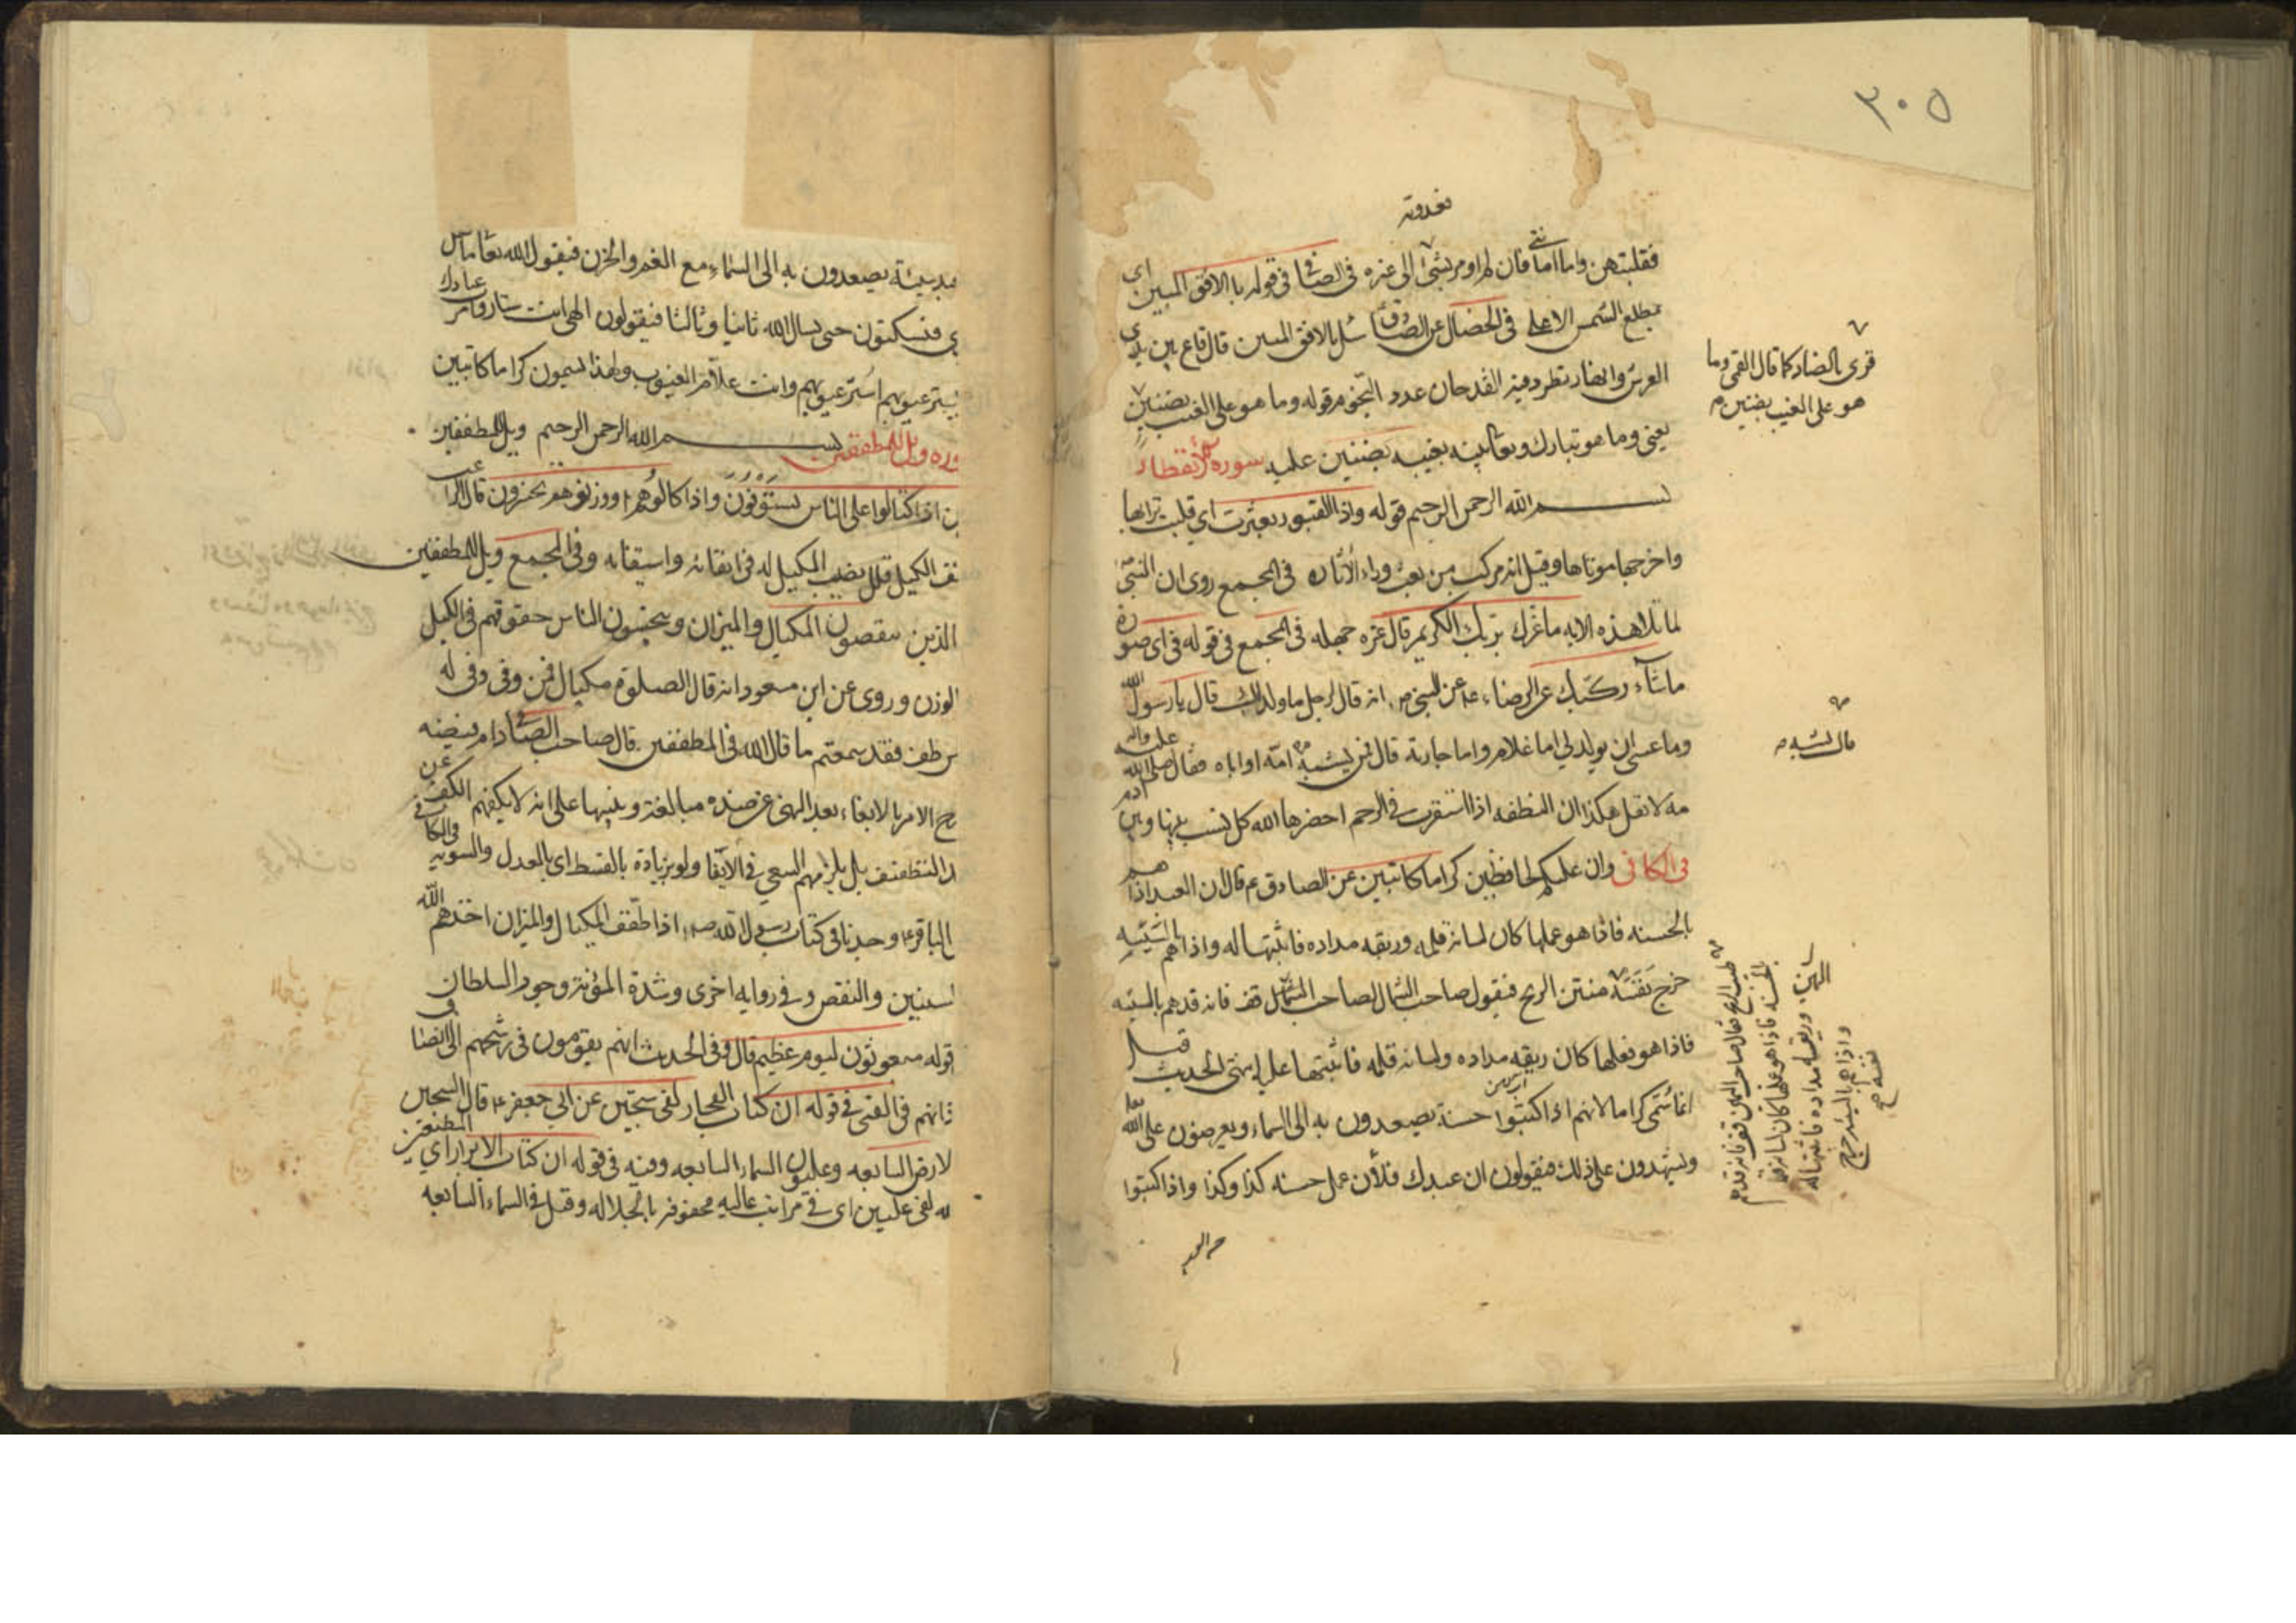 ٣٠٥
فقلبتهن واما فان لم اومر بشئ الى غيره فى الصافى فى قوله بالافق المبين اى
مطلع الشمس الاعلى فى الخصال عن الصادق سئل بالافق المبين قال قاع بين يدى
العرش وانهار تطرد فيه القدحان عدد النجوم قوله وما هو على الغيب بضنين
يعنى وما هو تبارك وتعالى بغيبه بضنين عليه سورة الانفطار
بسم الله الرحمن الرحيم قوله واذا القبور بعثرت اى قلبت ترابها
واخرجها موتاها وقيل انه مركب من بعث وراء الاثاره فى المجمع روى ان النبى
لما تلا هذه الايه ما غرك بربك الكريم قال غره جهله فى المجمع فى قوله فى اى صورة
ما شاء ركبك عن الرضا ع عن النبى ص انه قال لرجل ما ولد لك قال يا رسول الله
وما عسى ان يولد لي اما غلام واما جارية قال فمن يشبه امه او اباه فقال صلى الله عليه واله
مه لا تقل هكذا ان النطفه اذا استقرت فى الرحم احضرها الله كل نسب بينها وبين ادم
فى الكافى وان عليكم لحافظين كراما كاتبين عن الصادق ع قال ان العبد اذا هم
بالحسنه فاذا هو عملها كان لسانه قلمه وريقه مداده فاثبتها له واذا هم بالسيئه
خرج نفسه منتن الريح فيقول صاحب الشمال لصاحب قف فانه قد هم بالسيئه
فاذا هو فعلها كان ريقه مداده ولسانه قلمه فاثبتها عليه انتهى الحديث قيل
انما سمى كراما لانهم اذا اكتبوا حسنة يصعدون به الى السماء ويعرضون على الله
ويشهدون على ذلك فيقولون ان عبدك فلان عمل حسنه كذا وكذا واذا اكتبوا
قرى بالضاد كما قال القمى وما
هو على الغيب بضنين م
طيب الريح فقال صاحب اليمين قف فانه قد هم
بالحسنه فاذا هو عملها كان لسانه قلمه
وريقه مداده فاثبتها له
واذا هم بالسيئه خرج
نفسه
يصعدون به الى السماء مع الغم والحزن فيقول الله تعالى ما
فيسكتون حتى يسال الله ثانيا وثالثا فيقولون الهى انت ستار وامر عبادك
يستر عيوبهم استر عيوبهم وانت علام الغيوب ولهذا يسمون كراما كاتبين
ويل للمطففين بسم الله الرحمن الرحيم ويل للمطففين
اذا اكتالوا على الناس يستوفون واذا كالوهم او وزنوهم يخسرون قال
الكيل قلل نصيب المكيل له فى ايفائه واستيفائه وفى المجمع ويل للمطففين
الذين ينقصون المكيال والميزان ويبخسون الناس حقوقهم فى الكيل
الوزن وروى عن ابن مسعود انه قال الصلوة مكيال فمن وفى وفى له
طفف فقد سمعتم ما قال الله فى المطففين قال صاحب الصافى
الامر بالايفاء بعد النهى عن ضده مبالغة وتنبيها على انه لا يكفيهم الكف عن
التطفيف بل يلزمهم السعى فى الايفا ولو بزيادة بالقسط اى بالعدل والسويه وفى الكافى
الباقر ع وجدنا فى كتاب رسول الله ص اذا طفف المكيال والميزان اخذهم الله
لسنين والنقص وفى روايه اخرى وشدة المؤنة وجور السلطان
قوله مبعوثون ليوم عظيم قال وفى الحديث انهم يقومون فى رشحهم الى انصاف
اذانهم فى القمى فى قوله ان كتاب الفجار لفى سجين عن ابى جعفر ع قال السجين
لارض السابعه وعليون السماء السابعه وفيه فى قوله ان كتاب الابرار اى
لفى عليين اى فى مراتب عاليه محفوفه بالجلاله وقيل فى السماء السابعه